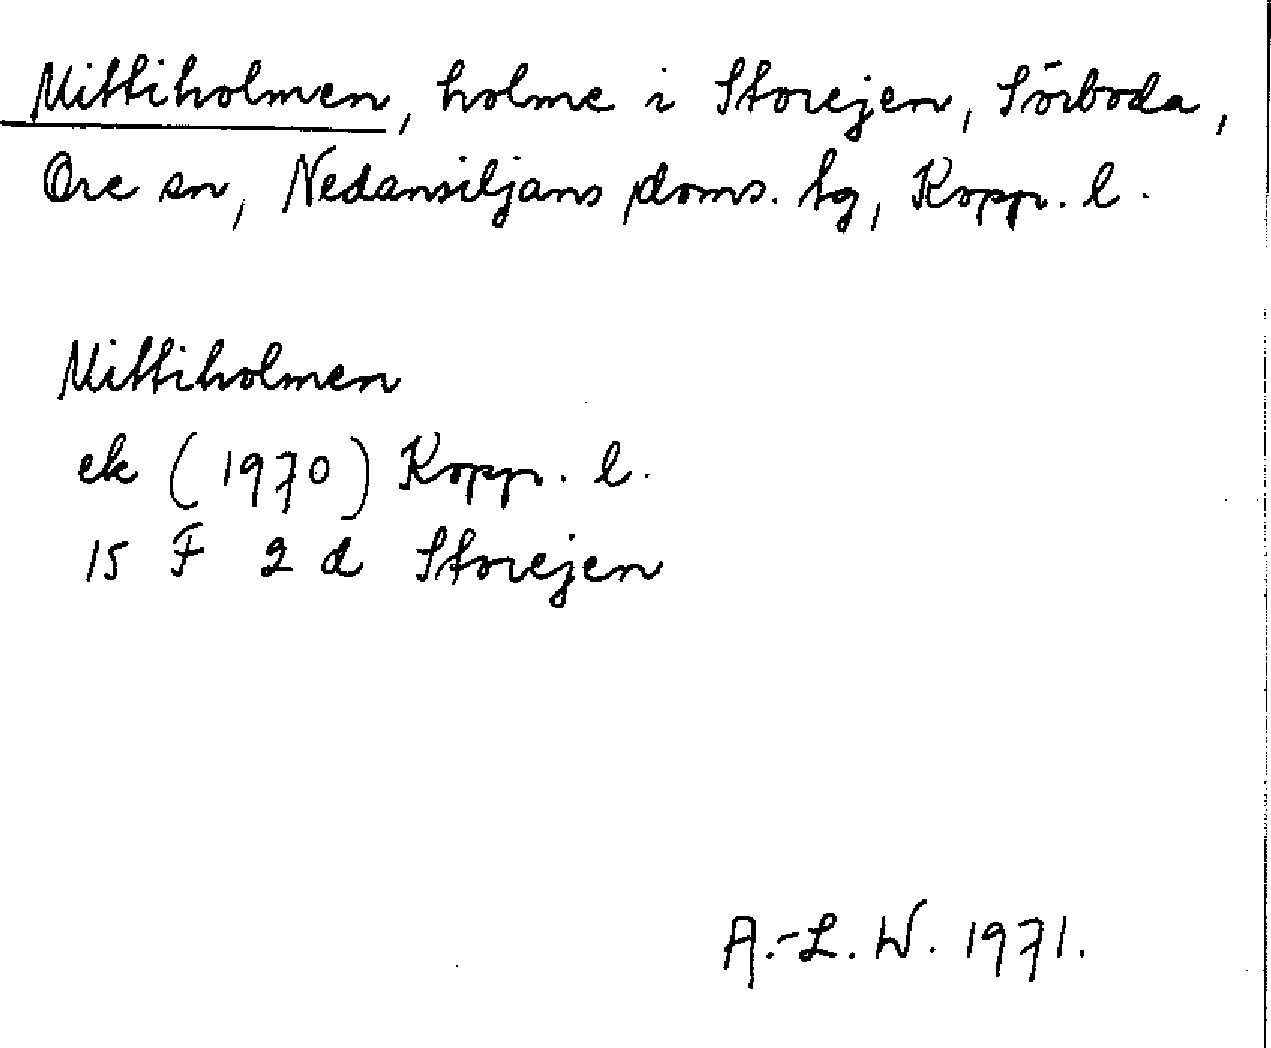 Mittiholmen, holme i Storejen, Sörboda,
Ore sn, Nedansiljans doms. tg, Kopp. l.
Mittiholmen
ek (1970) Kopp. l.
15 F 2 d Storejen
A.-L. W. 1971.